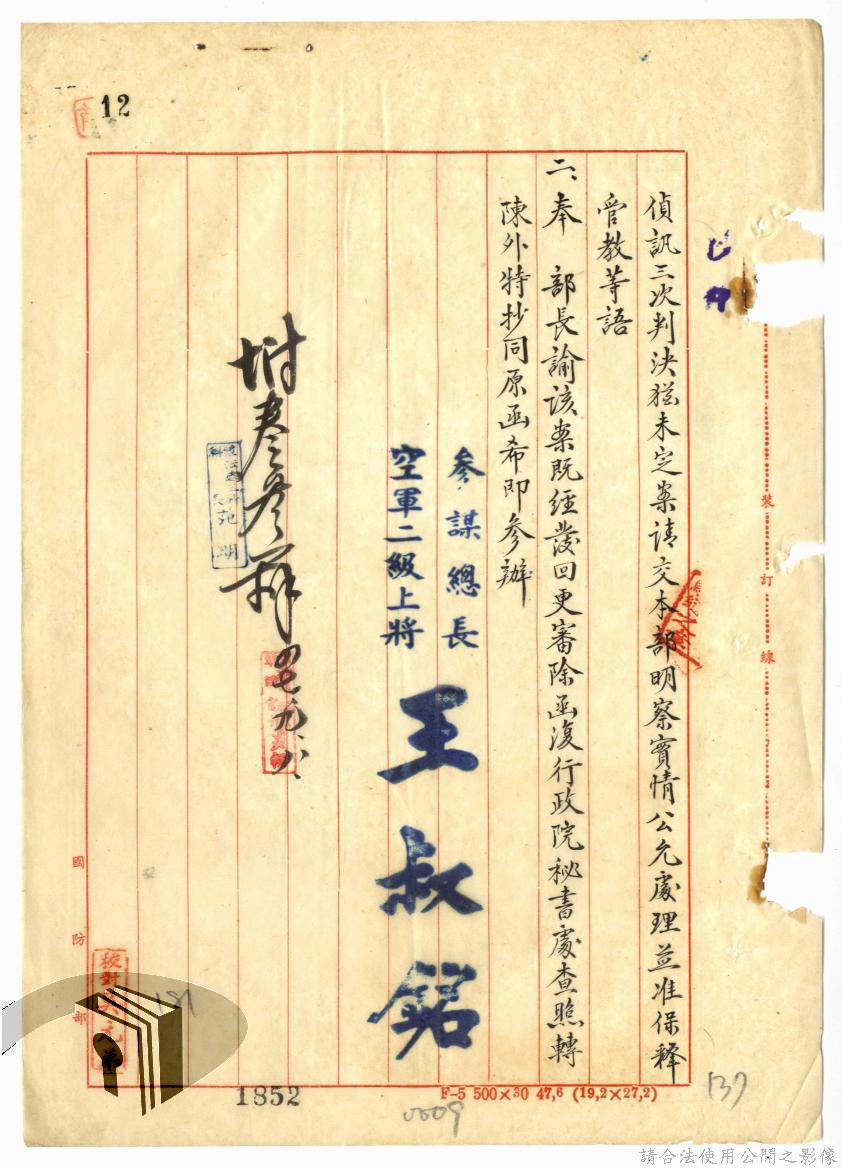 12
偵訊三次判決猶未定案請交本部明察實情公允處理並准保釋
管教等語
二、奉　部長諭該案既經發回更審除函復行政院秘書處查照轉
陳外特抄同原函希即參辦
參謀總長
空軍二級上將
王叔銘
四七、九、八、
苑明
裝訂線
國防部
校對
1852
F-5 500×30 47,6 (19,2×27,2)
0009
137
請合法使用公開之影像